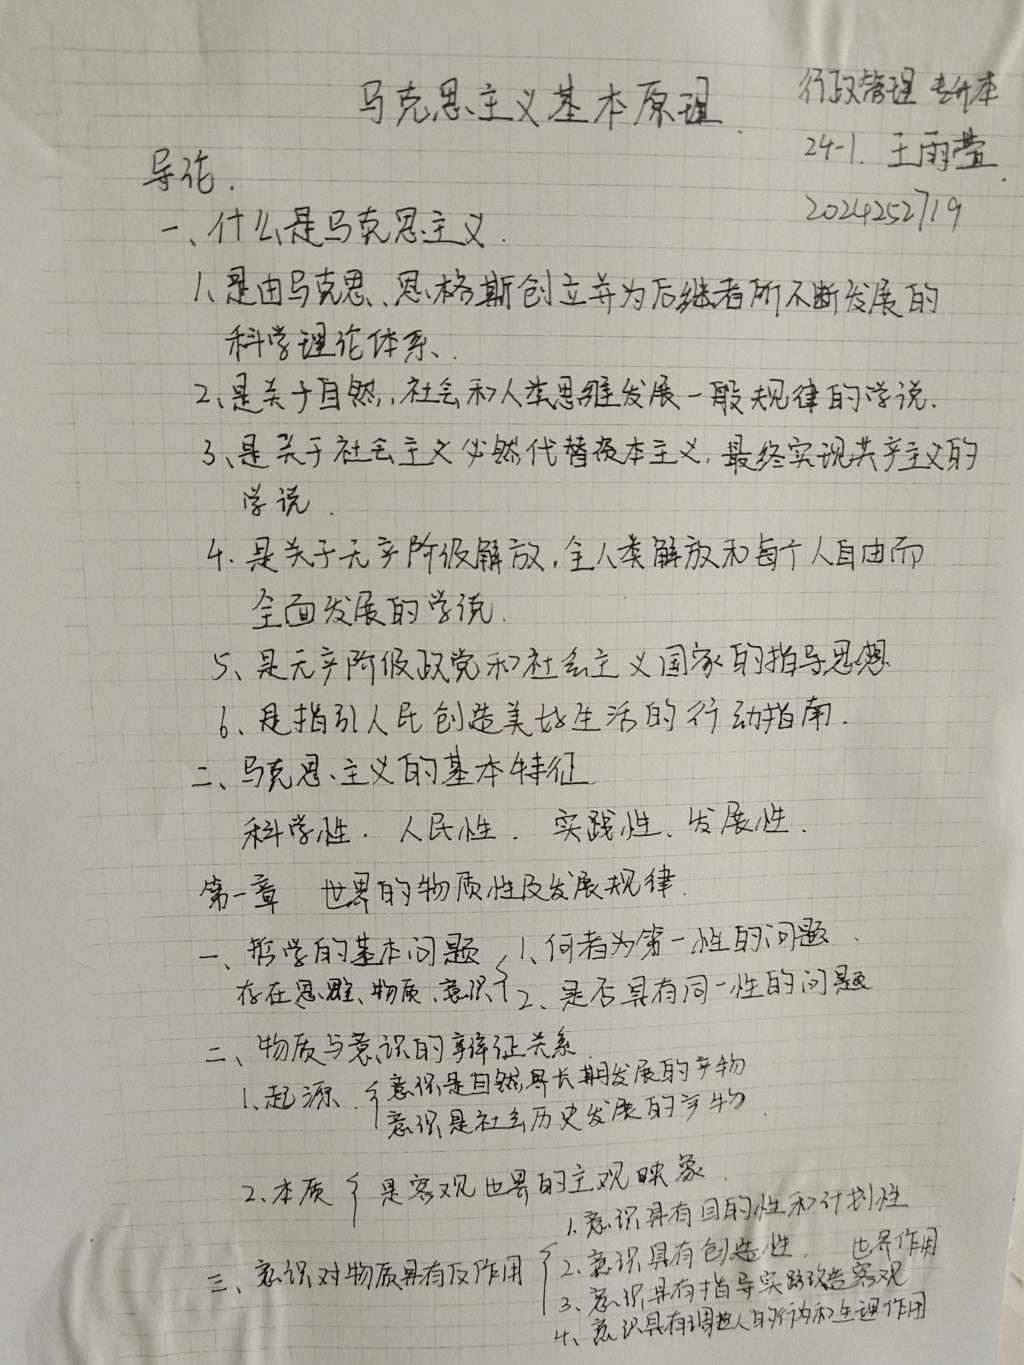 马克思主义基本原理
行政管理 专升本
24-1. 王雨萱.
2024252719
导论.
一、什么是马克思主义.
1、是由马克思、恩格斯创立并为后继者所不断发展的
科学理论体系、.
2、是关于自然,社会和人类思维发展一般规律的学说.
3、是关于社会主义必然代替资本主义,最终实现共产主义的
学说.
4.是关于无产阶级解放,全人类解放和每个人自由而
全面发展的学说.
5、是无产阶级政党和社会主义国家的指导思想
6、是指引人民创造美好生活的行动指南.
二、马克思主义的基本特征
科学性. 人民性. 实践性、发展性.
第一章 世界的物质性及发展规律.
一、哲学的基本问题 1、何者为第一性的问题.
存在思维、物质、意识 2、是否具有同一性的问题
二、物质与意识的辩证关系.
1、起源. 意识是自然界长期发展的产物
意识是社会历史发展的产物.
2、本质 是客观世界的主观映象.
三、意识对物质具有反作用
1.意识具有目的性和计划性
2.意识具有创造性.
3、意识具有指导实践改造客观世界作用
4、意识具有调控人的行为和生理作用